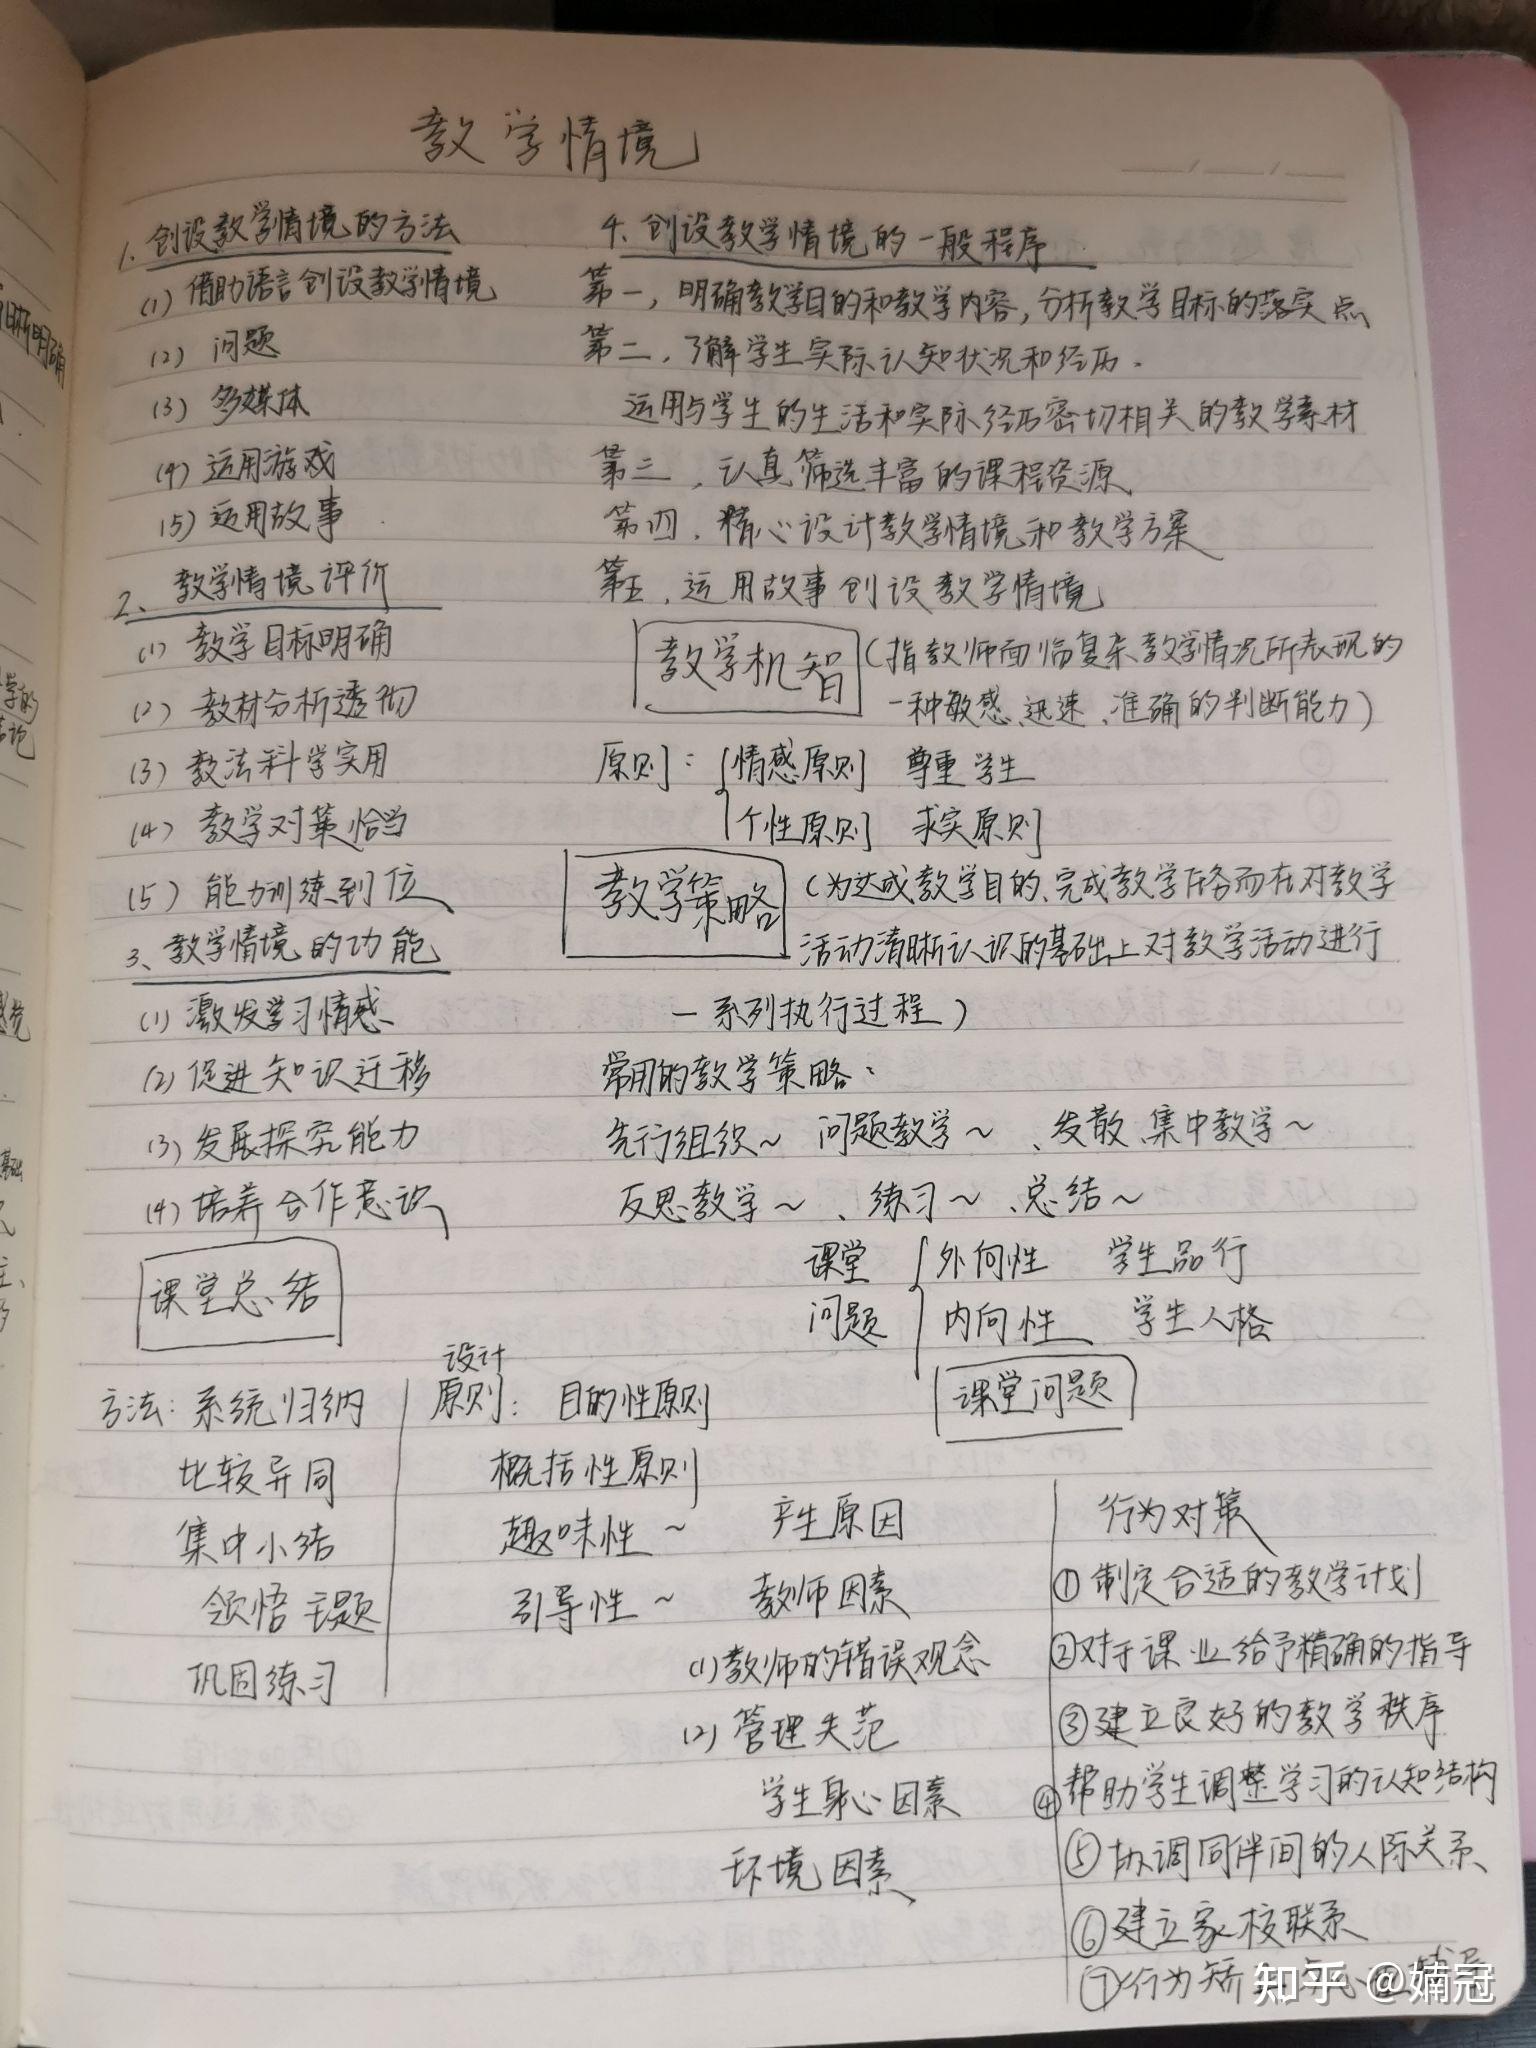 教学情境
1、创设教学情境的方法
(1) 借助语言创设教学情境
(2) 问题
(3) 多媒体
(4) 运用游戏
(5) 运用故事
2、教学情境评价
(1) 教学目标明确
(2) 教材分析透彻
(3) 教法科学实用
(4) 教学对策恰当
(5) 能力训练到位
3、教学情境的功能
(1) 激发学习情感
(2) 促进知识迁移
(3) 发展探究能力
(4) 培养合作意识
4、创设教学情境的一般程序
第一，明确教学目的和教学内容，分析教学目标的落实点
第二，了解学生实际认知状况和经历．
运用与学生的生活和实际经历密切相关的教学素材
第三，认真筛选丰富的课程资源
第四，精心设计教学情境和教学方案
第五，运用故事创设教学情境
教学机智（指教师面临复杂教学情况所表现的
一种敏感、迅速、准确的判断能力）
原则：情感原则 尊重学生
个性原则 求实原则
教学策略（为达成教学目的、完成教学任务而在对教学
活动清晰认识的基础上对教学活动进行
一系列执行过程）
常用的教学策略：
先行组织~ 问题教学~ 、发散、集中教学~
反思教学~ 、练习~ 、总结~
课堂 外向性 学生品行
问题 内向性 学生人格
课堂总结
方法：系统归纳
比较异同
集中小结
领悟主题
巩固练习
设计
原则：目的性原则
概括性原则
趣味性~
引导性~
课堂问题
产生原因
教师因素
(1) 教师的错误观念
(2) 管理失范
学生身心因素
环境因素
行为对策
①制定合适的教学计划
②对于课业给予精确的指导
③建立良好的教学秩序
④帮助学生调整学习的认知结构
⑤协调同伴间的人际关系
⑥建立家校联系
⑦行为矫
知乎 @婻冠